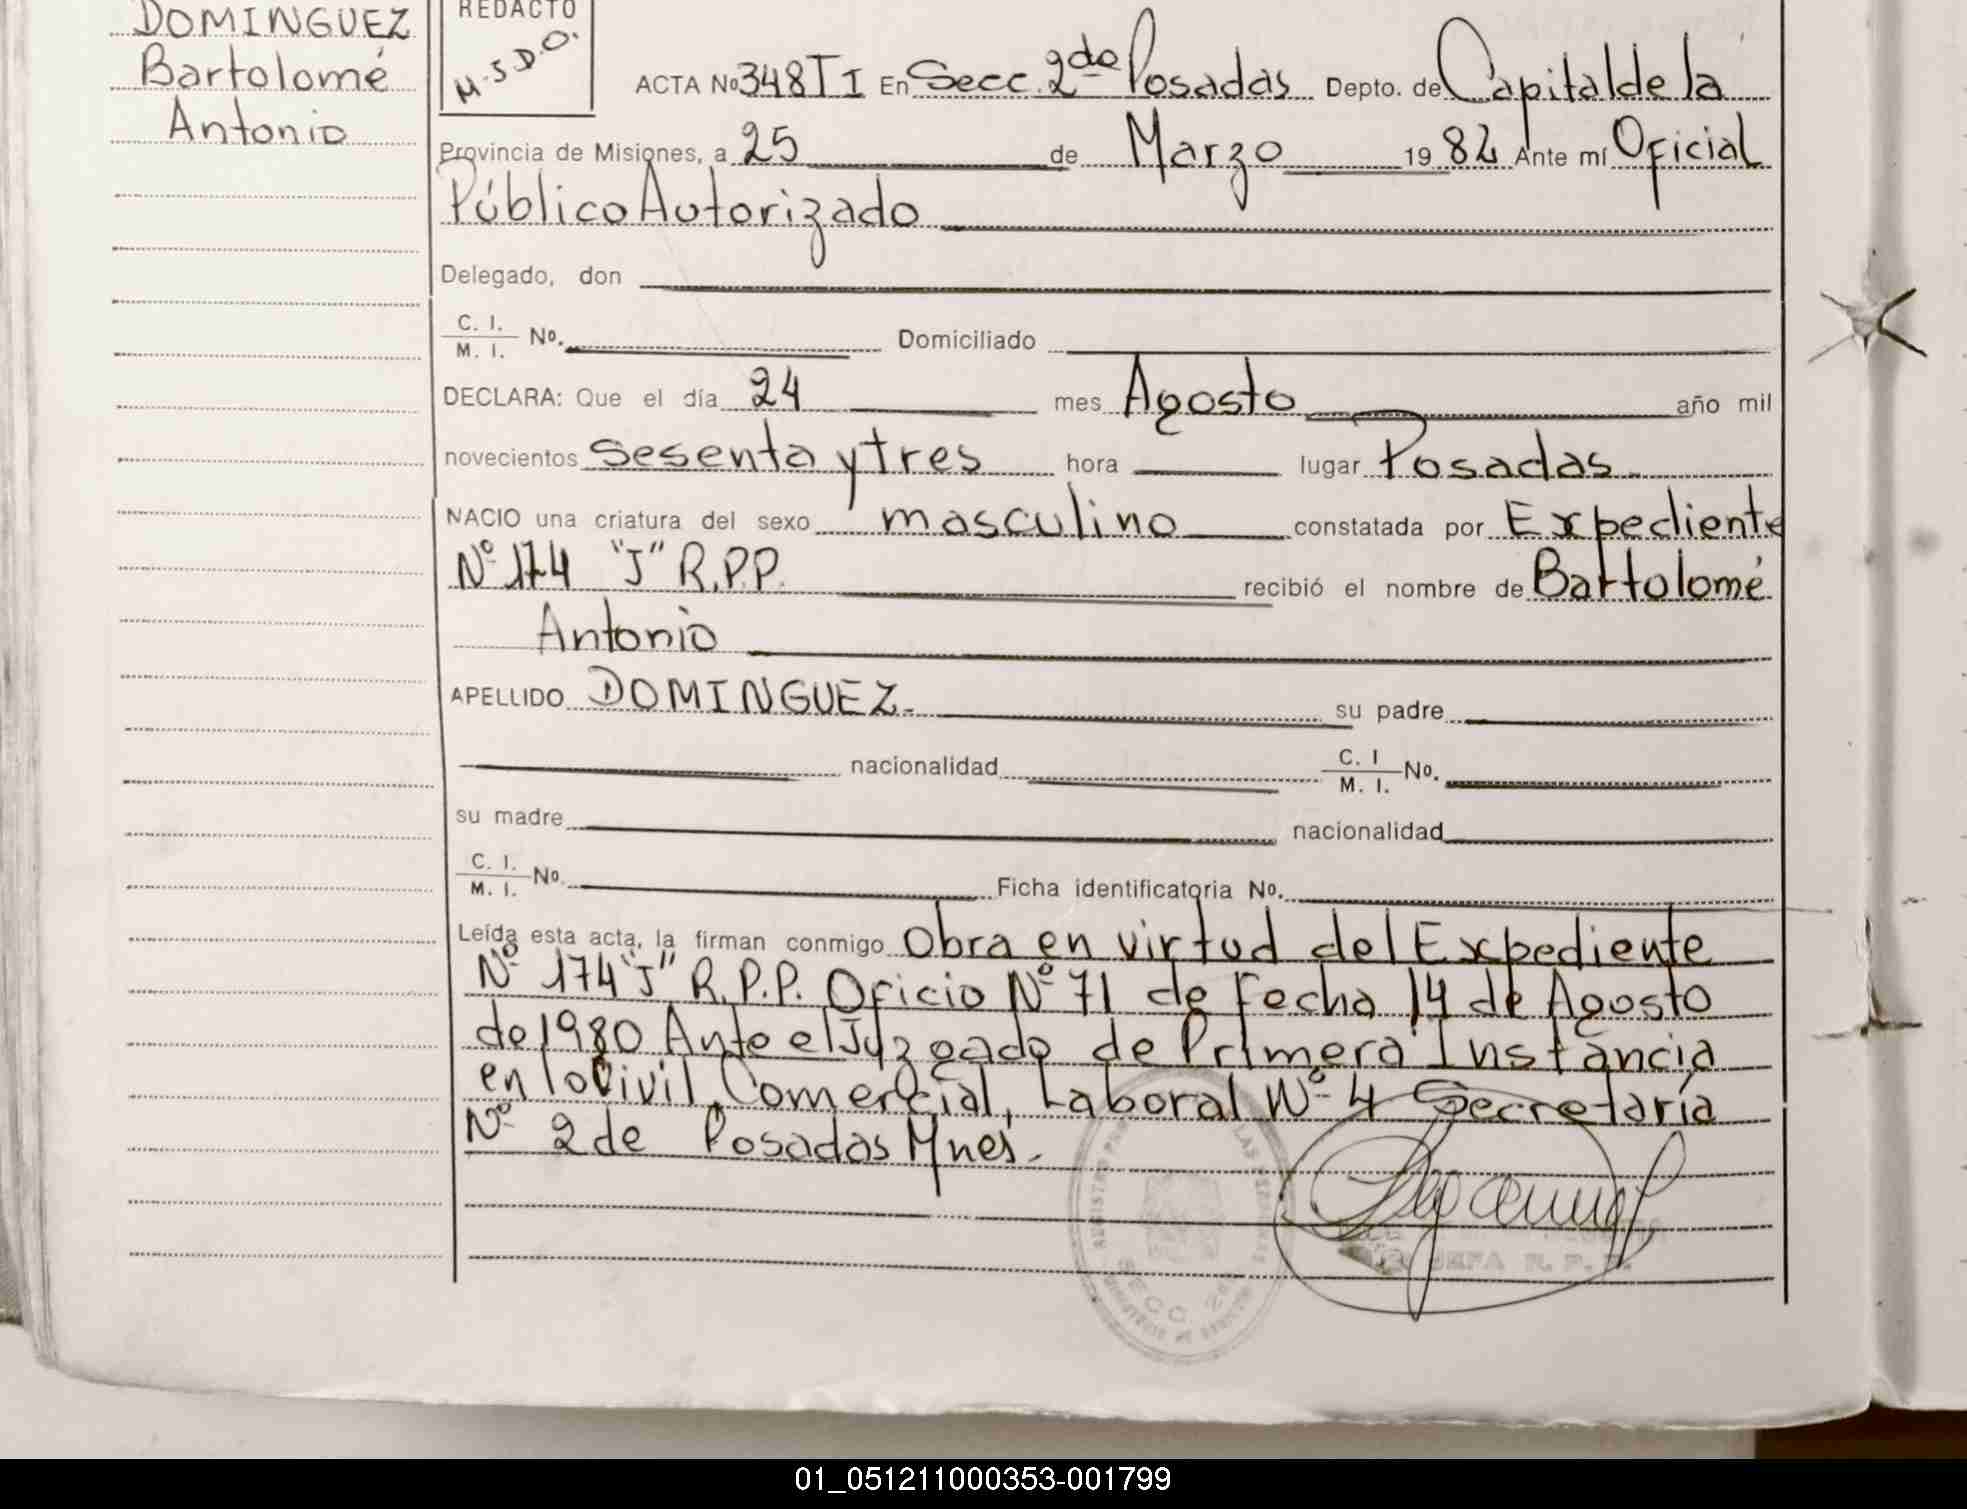 DOMINGUEZ
Bartolomé
Antonio
REDACTO
M.S.D.O.
ACTA Nº 348 T I En Secc. 2da Posadas Depto. de Capital de la
Provincia de Misiones, a 25 de Marzo 1982 Ante mí Oficial
Público Autorizado
Delegado, don
C. I.
M. I. Nº. Domiciliado
DECLARA: Que el día 24 mes Agosto año mil
novecientos sesenta y tres hora lugar Posadas
NACIO una criatura del sexo masculino constatada por Expediente
Nº 174 "J" R.P.P. recibió el nombre de Bartolomé
Antonio
APELLIDO DOMINGUEZ. su padre
nacionalidad C. I
M. I. Nº.
su madre nacionalidad
C. I.
M. I. Nº. Ficha identificatoria Nº.
Leída esta acta, la firman conmigo Obra en virtud del Expediente
Nº 174 "J" R.P.P. Oficio Nº 71 de fecha 14 de Agosto
de 1980 Ante el Juzgado de Primera Instancia
en lo Civil, Comercial, Laboral Nº 4 Secretaría
Nº 2 de Posadas Mnes.
SECC 2da
JEFA R. P. P.
01_051211000353-001799